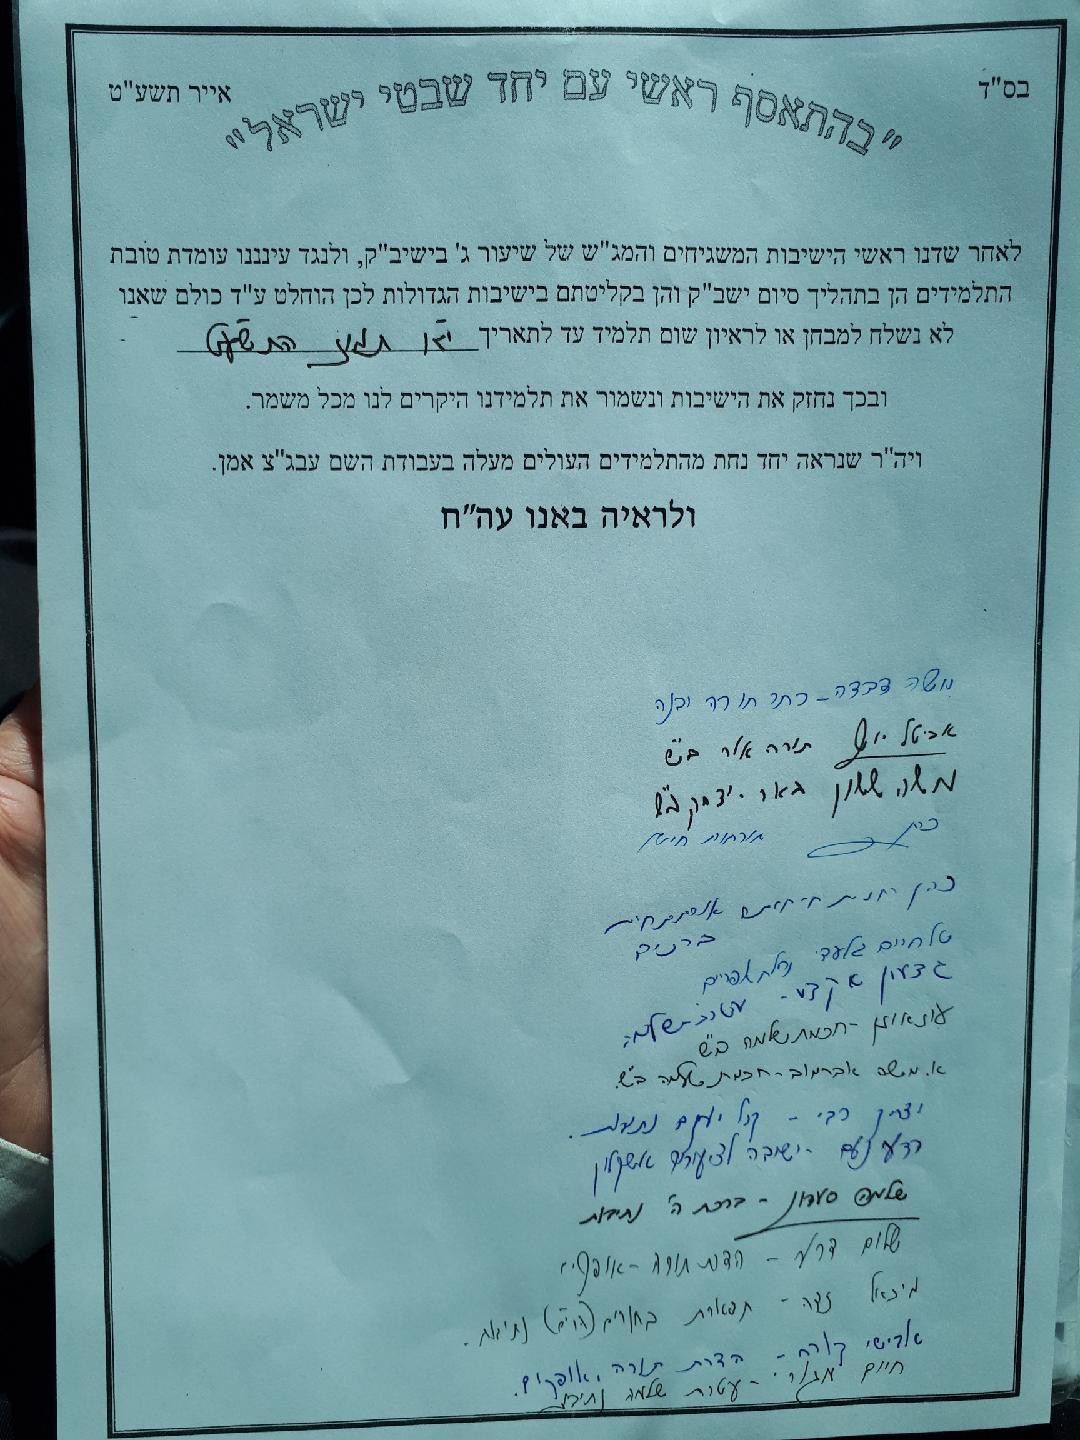 בס"ד
אייר תשע"ט
"בהתאסף ראשי עם יחד שבטי ישראל"
לאחר שדנו ראשי הישיבות המשגיחים והמג"ש של שיעור ג' בישיב"ק, ולנגד עינננו עומדת טובת
התלמידים הן בתהליך סיום ישב"ק והן בקליטתם בישיבות הגדולות לכן הוחלט ע"ד כולם שאנו
לא נשלח למבחן או לראיון שום תלמיד עד לתאריך תמוז התשע"ט
ובכך נחזק את הישיבות ונשמור את תלמידנו היקרים לנו מכל משמר.
ויה"ר שנראה יחד נחת מהתלמידים העולים מעלה בעבודת השם עבג"צ אמן.
ולראיה באנו עה"ח
משה דבדה - תורה
אביטל תורה אור ב"ש
משה ששון באר - יצחק ב"ש
כהן
טל חיים גלעד
גדעון - עטרת שלמה
- חכמת שלמה ב"ש
א. משה אברמוב - חכמת שלמה ב"ש.
יצחק רבי - קול יעקב נתיבות.
רדעי נעם - ישיבה לצעירים אשקלון
שלמה סעדון - ברכת ה' נתיבות
שלום דרעי - הדרת תורה - אופקים
מיכאל - תפארת בחורים נתיבות.
אבישי קורח - הדרת תורה, אופקים.
חיים - עטרת שלמה נתיבות